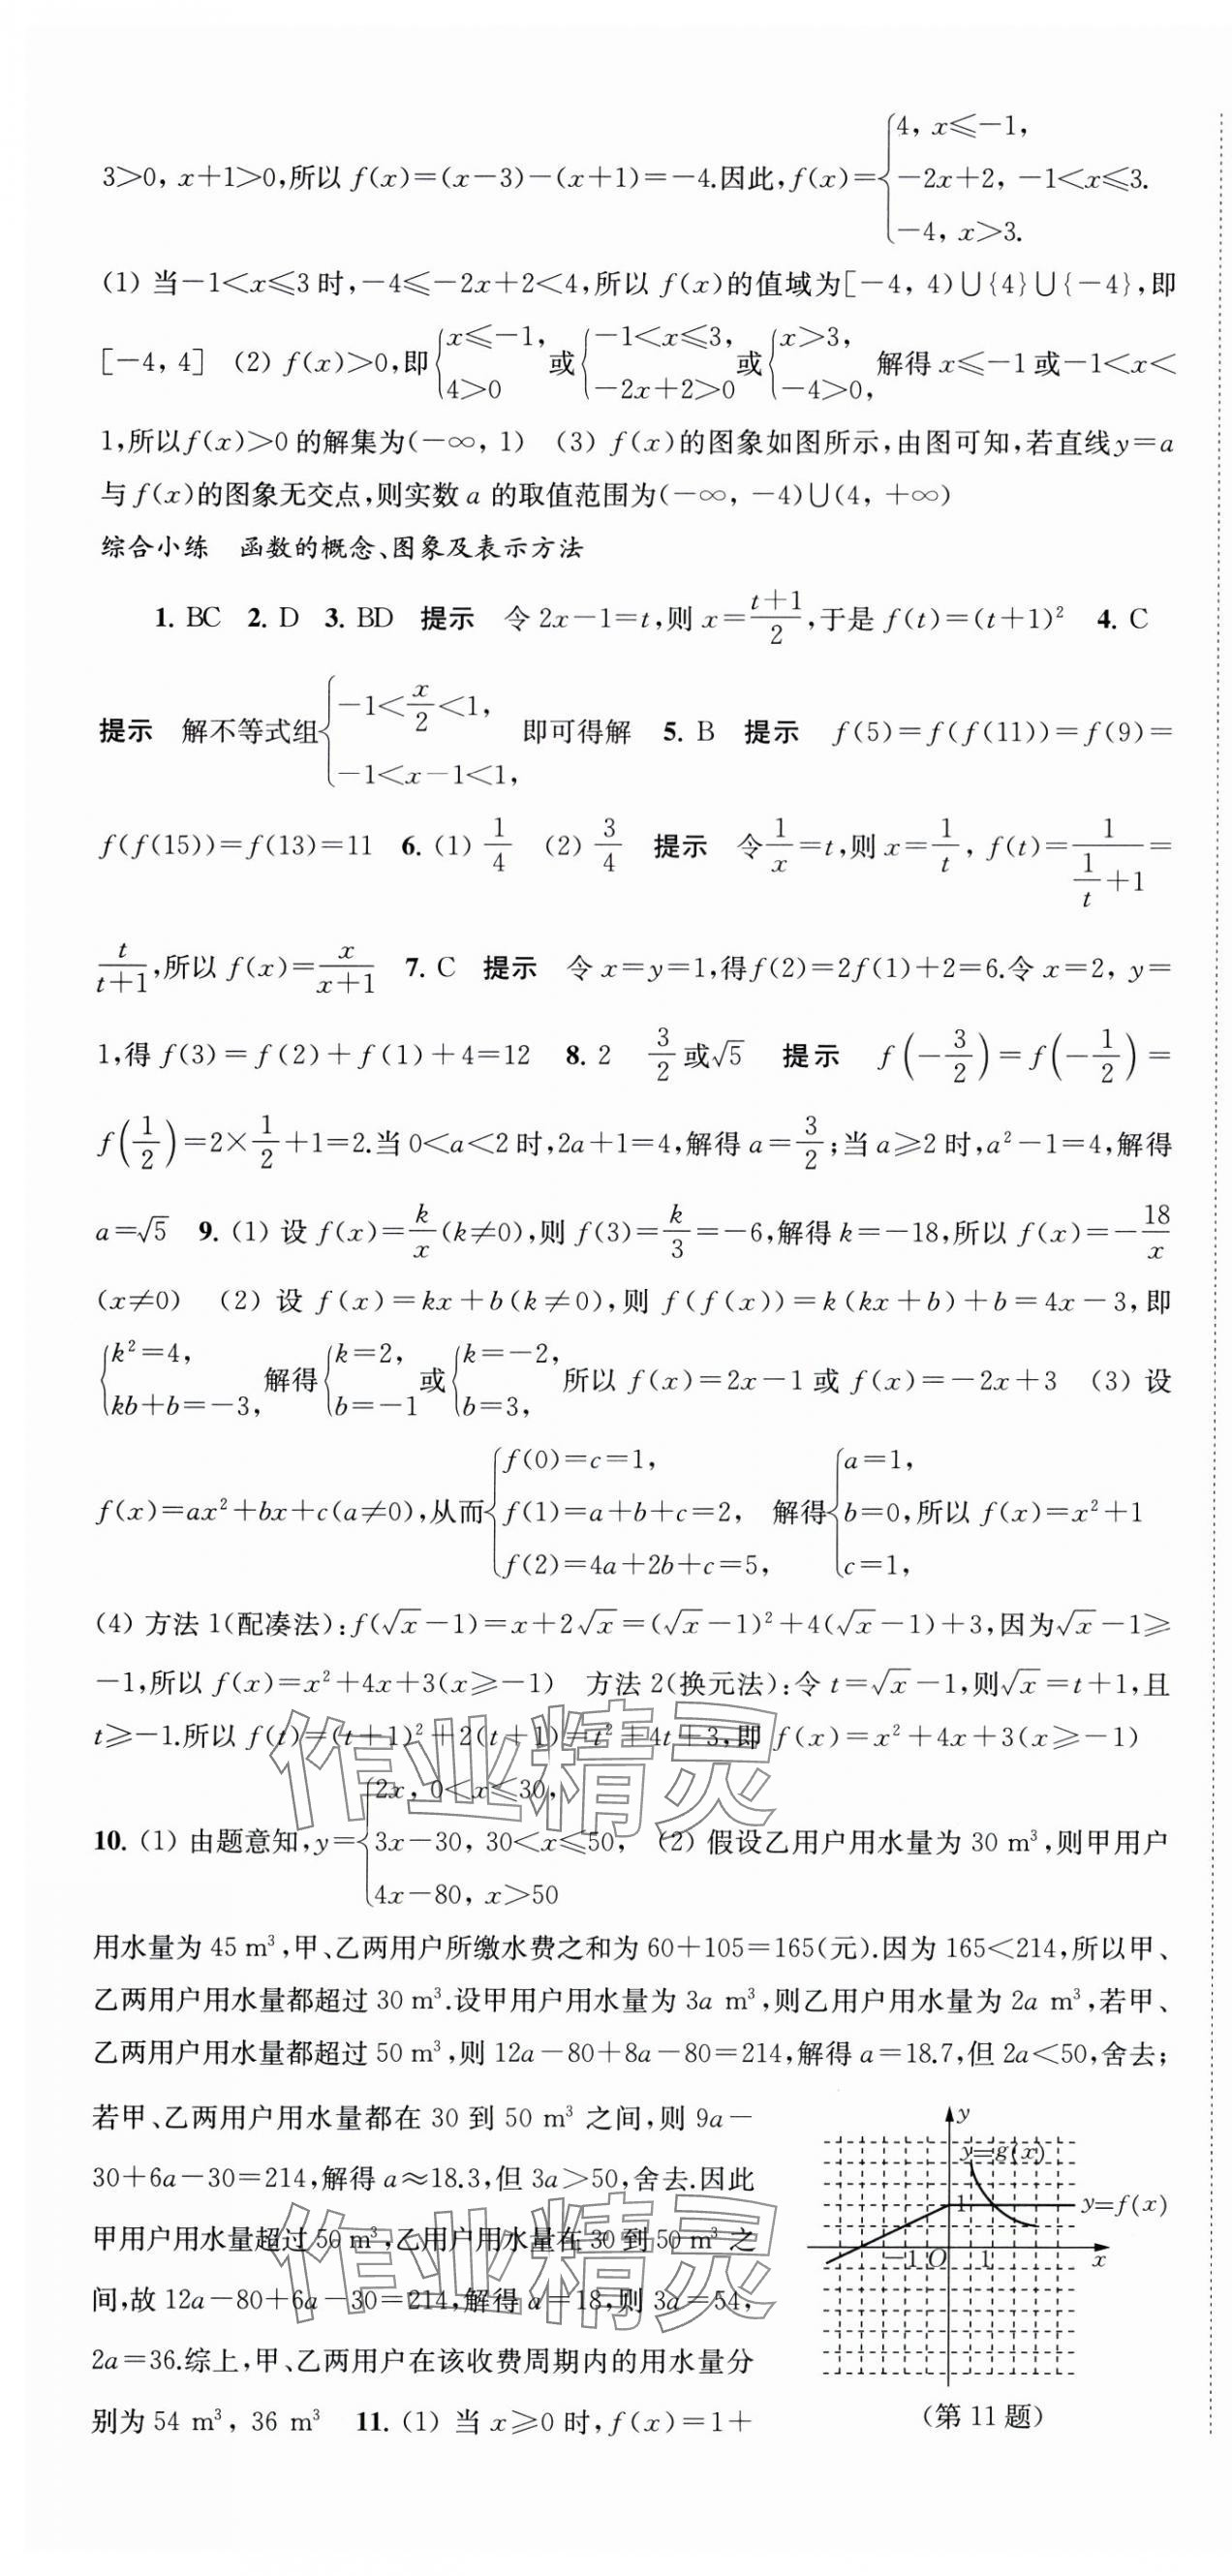 3>0, x+1>0,所以 f(x)=(x-3)-(x+1)=-4.因此,f(x)={4, x≤-1, -2x+2, -1<x≤3. -4, x>3.
(1) 当-1<x≤3 时,-4≤-2x+2<4,所以 f(x)的值域为[-4, 4)∪{4}∪{-4},即
[-4, 4] (2) f(x)>0,即{x≤-1, 4>0 或{-1<x≤3, -2x+2>0 或{x>3, -4>0, 解得 x≤-1 或-1<x<
1,所以f(x)>0 的解集为(-∞, 1) (3) f(x)的图象如图所示,由图可知,若直线y=a
与 f(x)的图象无交点,则实数 a 的取值范围为(-∞, -4)∪(4, +∞)
综合小练 函数的概念、图象及表示方法
1. BC 2. D 3. BD 提示 令 2x-1=t,则 x=\frac{t+1}{2},于是 f(t)=(t+1)² 4. C
提示 解不等式组{-1<\frac{x}{2}<1, -1<x-1<1, 即可得解 5. B 提示 f(5)=f(f(11))=f(9)=
f(f(15))=f(13)=11 6. (1) \frac{1}{4} (2) \frac{3}{4} 提示 令\frac{1}{x}=t,则 x=\frac{1}{t}, f(t)=\frac{1}{\frac{1}{t}+1}=
\frac{t}{t+1},所以 f(x)=\frac{x}{x+1} 7. C 提示 令 x=y=1,得f(2)=2f(1)+2=6.令 x=2, y=
1,得 f(3)=f(2)+f(1)+4=12 8. 2 \frac{3}{2}或√5 提示 f(-\frac{3}{2})=f(-\frac{1}{2})=
f(\frac{1}{2})=2×\frac{1}{2}+1=2.当 0<a<2 时,2a+1=4,解得 a=\frac{3}{2};当 a≥2 时,a²-1=4,解得
a=√5 9. (1) 设 f(x)=\frac{k}{x}(k≠0),则 f(3)=\frac{k}{3}=-6,解得 k=-18,所以 f(x)=-\frac{18}{x}
(x≠0) (2) 设 f(x)=kx+b(k≠0),则 f(f(x))=k(kx+b)+b=4x-3,即
{k²=4, kb+b=-3, 解得{k=2, b=-1 或{k=-2, b=3, 所以 f(x)=2x-1 或 f(x)=-2x+3 (3) 设
f(x)=ax²+bx+c(a≠0),从而{f(0)=c=1, f(1)=a+b+c=2, f(2)=4a+2b+c=5, 解得{a=1, b=0, c=1, 所以 f(x)=x²+1
(4) 方法 1(配凑法):f(√x-1)=x+2√x=(√x-1)²+4(√x-1)+3,因为√x-1≥
-1,所以 f(x)=x²+4x+3(x≥-1) 方法 2(换元法):令 t=√x-1,则√x=t+1,且
t≥-1.所以 f(t)=(t+1)²+2(t+1)=t²+4t+3,即 f(x)=x²+4x+3(x≥-1)
10. (1) 由题意知,y={2x, 0<x≤30, 3x-30, 30<x≤50, 4x-80, x>50 (2) 假设乙用户用水量为 30 m³,则甲用户
用水量为 45 m³,甲、乙两用户所缴水费之和为 60+105=165(元).因为 165<214,所以甲、
乙两用户用水量都超过 30 m³.设甲用户用水量为 3a m³,则乙用户用水量为 2a m³,若甲、
乙两用户用水量都超过 50 m³,则 12a-80+8a-80=214,解得 a=18.7,但 2a<50,舍去;
若甲、乙两用户用水量都在 30 到 50 m³ 之间,则 9a-
30+6a-30=214,解得 a≈18.3,但 3a>50,舍去.因此
甲用户用水量超过 50 m³,乙用户用水量在 30 到 50 m³ 之
间,故 12a-80+6a-30=214,解得 a=18,则 3a=54,
2a=36.综上,甲、乙两用户在该收费周期内的用水量分
别为 54 m³, 36 m³ 11. (1) 当 x≥0 时,f(x)=1+
y
y=g(x)
1
y=f(x)
-1 O 1 x
(第 11 题)
作业精灵
作业精灵